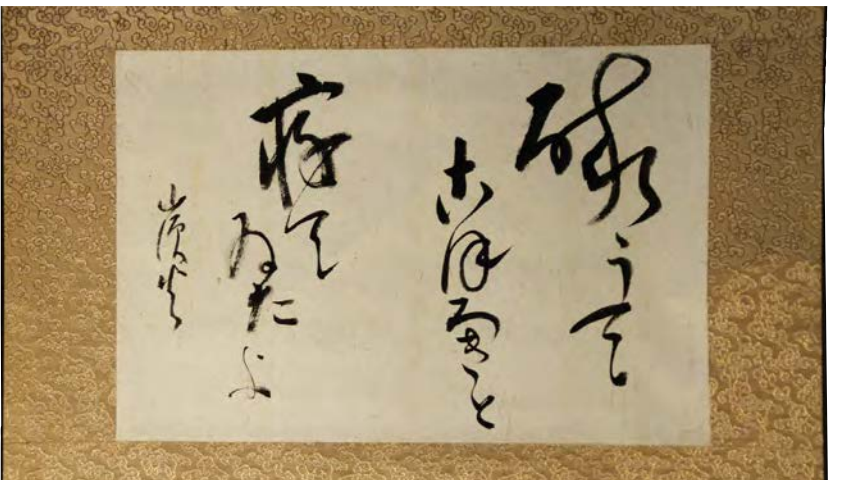 酔うて
こほろぎと
寝て
ゐたよ
山頭火